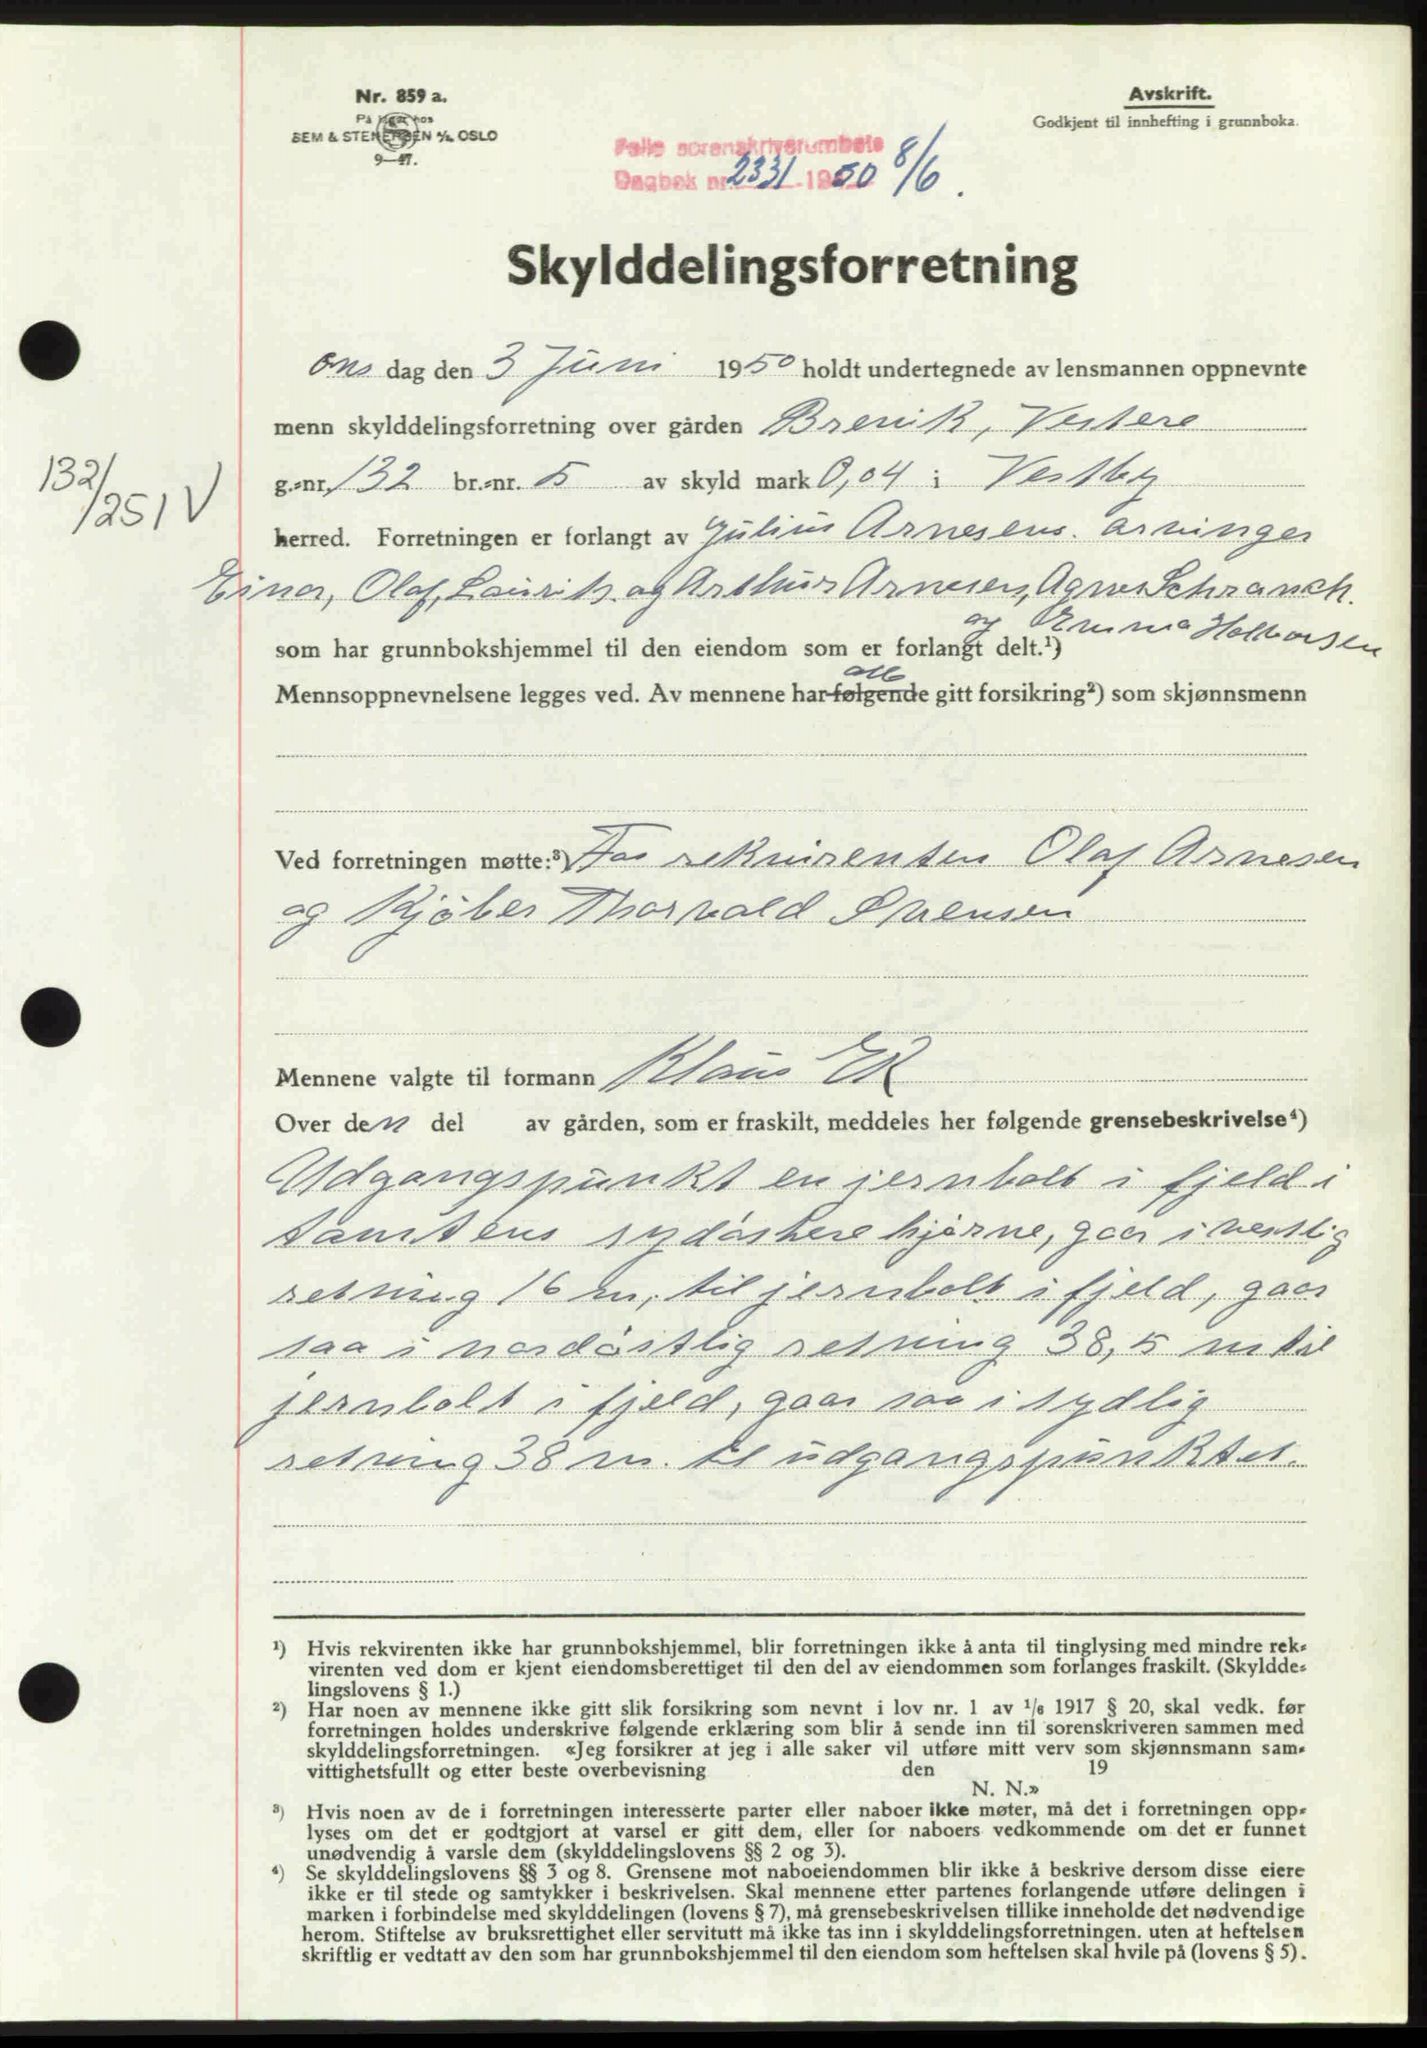 Nr. 859 a.
På lager hos
SEM & STENERSEN A/S OSLO
9—47.
Avskrift.
Godkjent til innhefting i grunnboka.
Follo sorenskriverembete
Dagbok nr. 2331 - 1950 8/6.
Skylddelingsforretning
ons dag den 3 Juni 1950 holdt undertegnede av lensmannen oppnevnte
menn skylddelingsforretning over gården Brevik, Vestere
132/251 V
g.=nr. 132 br.=nr. 5 av skyld mark 0,04 i Vestby
herred. Forretningen er forlangt av Julius Arnesens arvinger
Einar, Olaf, Lauritz og Arthur Arnesen, Agnes Schranch.
og Emma Halvorsen
som har grunnbokshjemmel til den eiendom som er forlangt delt.¹)
alle
Mennsoppnevnelsene legges ved. Av mennene har følgende gitt forsikring²) som skjønnsmenn
Ved forretningen møtte:³) For rekvirenten Olaf Arnesen
og Kjøber Thorvald Svensen
Mennene valgte til formann Klaus Ek
Over den del av gården, som er fraskilt, meddeles her følgende grensebeskrivelse⁴)
Udgangspunkt en jernbolt i fjeld i
tomtens sydøstere hjørne, gaar i vestlig
retning 16 m, til jernbolt i fjeld, gaar
saa i nordøstlig retning 38,5 m til
jernbolt i fjeld, gaar saa i sydlig
retning 38 m. til udgangspunktet.
¹) Hvis rekvirenten ikke har grunnbokshjemmel, blir forretningen ikke å anta til tinglysing med mindre rek=
virenten ved dom er kjent eiendomsberettiget til den del av eiendommen som forlanges fraskilt. (Skyldde=
lingslovens § 1.)
²) Har noen av mennene ikke gitt slik forsikring som nevnt i lov nr. 1 av 1/6 1917 § 20, skal vedk. før
forretningen holdes underskrive følgende erklæring som blir å sende inn til sorenskriveren sammen med
skylddelingsforretningen. «Jeg forsikrer at jeg i alle saker vil utføre mitt verv som skjønnsmann sam=
vittighetsfullt og etter beste overbevisning den 19
N. N.»
³) Hvis noen av de i forretningen interesserte parter eller naboer ikke møter, må det i forretningen opp=
lyses om det er godtgjort at varsel er gitt dem, eller for naboers vedkommende om det er funnet
unødvendig å varsle dem (skylddelingslovens §§ 2 og 3).
⁴) Se skylddelingslovens §§ 3 og 8. Grensene mot naboeiendommen blir ikke å beskrive dersom disse eiere
ikke er til stede og samtykker i beskrivelsen. Skal mennene etter partenes forlangende utføre delingen i
marken i forbindelse med skylddelingen (lovens § 7), må grensebeskrivelsen tillike inneholde det nødvendige
herom. Stiftelse av bruksrettighet eller servitutt må ikke tas inn i skylddelingsforretningen. uten at heftelsen
skriftlig er vedtatt av den som har grunnbokshjemmel til den eiendom som heftelsen skal hvile på (lovens § 5).